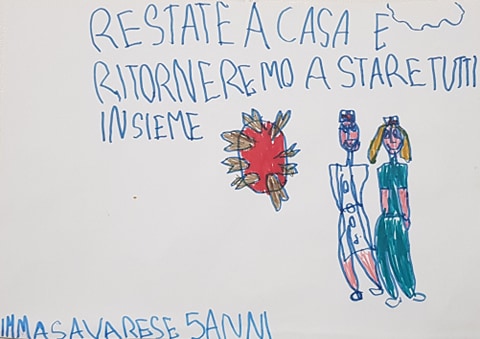 RESTATE A CASA E
RITORNEREMO A STARE TUTTI
INSIEME
IMMA SAVARESE 5 ANNI